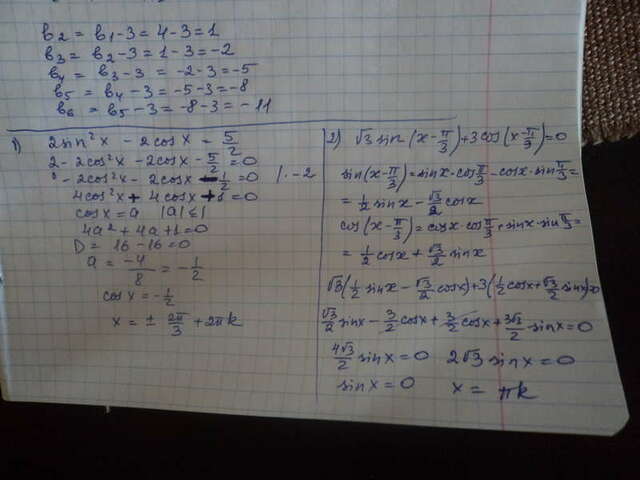 b₂ = b₁-3 = 4-3 = 1
b₃ = b₂-3 = 1-3 = -2
b₄ = b₃-3 = -2-3 = -5
b₅ = b₄-3 = -5-3 = -8
b₆ = b₅-3 = -8-3 = -11
1) 2sin²x - 2cosx = 5/2
2-2cos²x - 2cosx - 5/2 = 0
-2cos²x - 2cosx - 1/2 = 0 |·-2
4cos²x + 4cosx + 1 = 0
cosx = a |a| ≤ 1
4a² + 4a + 1 = 0
D = 16-16 = 0
a = -4/8 = -1/2
cosx = -1/2
x = ± 2π/3 + 2πk
2) √3 sin(x-π/3)+3cos(x-π/3)=0
sin(x-π/3)=sinx·cosπ/3-cosx·sinπ/3=
= 1/2 sinx - √3/2 cosx
cos(x-π/3)=cosx·cosπ/3+sinx·sinπ/3=
= 1/2 cosx + √3/2 sinx
√3(1/2 sinx - √3/2 cosx)+3(1/2 cosx+√3/2 sinx)=0
√3/2 sinx - 3/2 cosx + 3/2 cosx + 3√3/2 sinx = 0
4√3/2 sinx = 0 2√3 sinx = 0
sinx = 0 x = πk